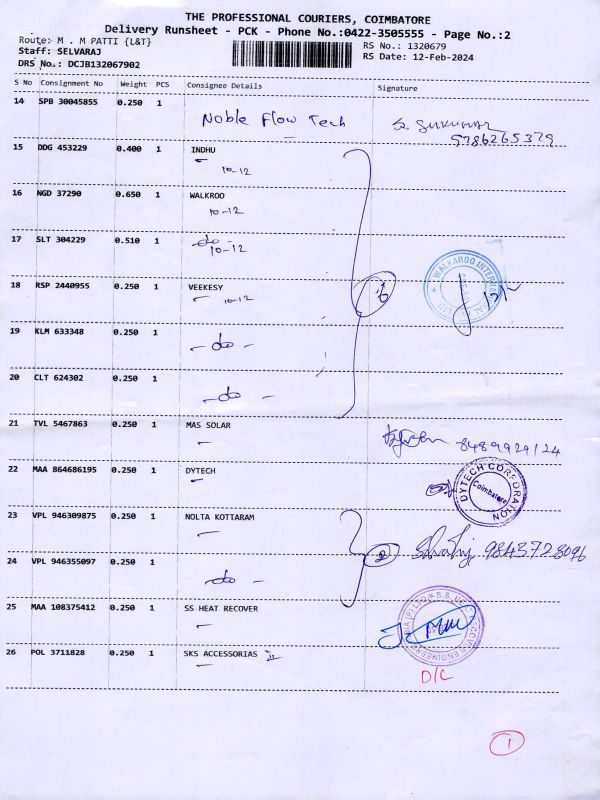 THE PROFESSIONAL COURIERS, COIMBATORE
Delivery Runsheet - PCK - Phone No.:0422-3505555 - Page No.:2
Route: M . M PATTI {L&T}
RS No.: 1320679
Staff: SELVARAJ
RS Date: 12-Feb-2024
DRS No.: DCJB132067902
S No Consignment No Weight PCS Consignee Details Signature
14 SPB 30045855 0.250 1 Noble Flow Tech S. SUKUMAR
9786265379
15 DDG 453229 0.400 1 INDHU
10-12
16 NGD 37290 0.650 1 WALKROO
10-12
17 SLT 304229 0.510 1 -do-
10-12
18 RSP 2440955 0.250 1 VEEKESY
10-12
WALKAROO INTERNATIONAL
19 KLM 633348 0.250 1
-do-
20 CLT 624302 0.250 1
-do-
21 TVL 5467863 0.250 1 MAS SOLAR
8489929124
22 MAA 864686195 0.250 1 DYTECH
DYTECH CORPORATION
Coimbatore
23 VPL 946309875 0.250 1 NOLTA KOTTARAM
9843728096
24 VPL 946355097 0.250 1
-do-
25 MAA 108375412 0.250 1 SS HEAT RECOVER
26 POL 3711828 0.250 1 SKS ACCESSORIAS
D/C
1